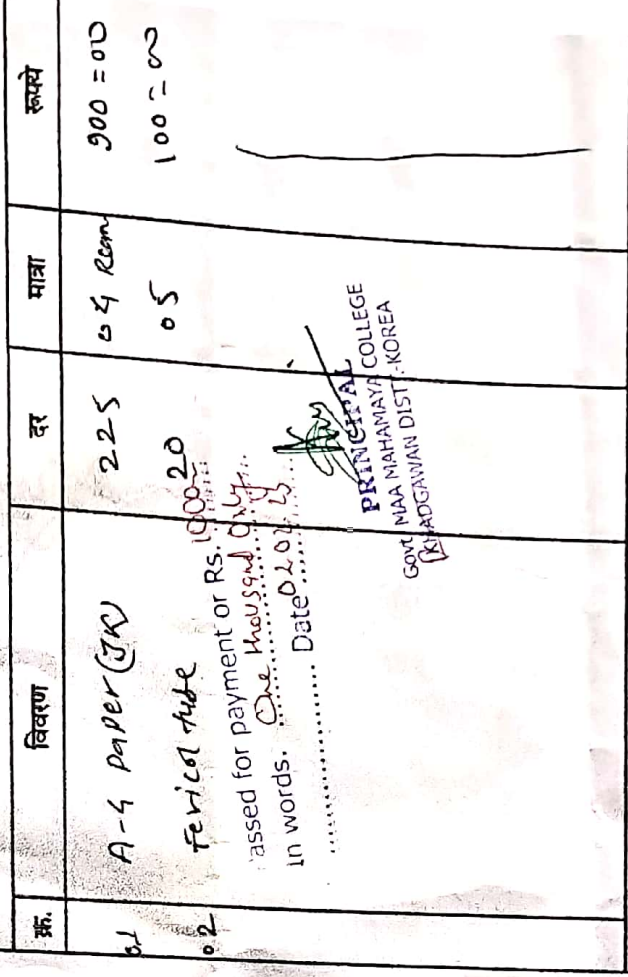 क्र. विवरण दर मात्रा रूपये
01 A-4 paper (JK) 225 04 Ream 900=00
02 Fevicol tube 20 05 100=00
assed for payment or Rs. 1000
in words. One thousand only
Date
PRINCIPAL
Govt. MAA MAHAMAYA COLLEGE
KHADGAWAN DISTT.-KOREA